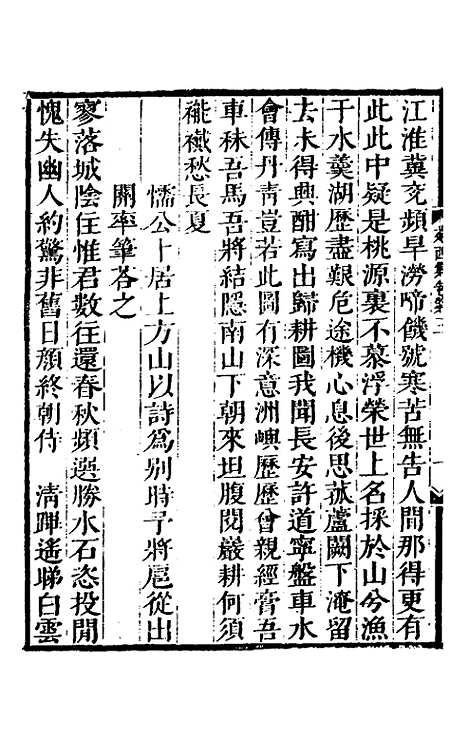 江淮冀兖頻旱澇啼饑號寒苦無告人間那得更有
此此中疑是桃源裏不慕浮榮世上名採於山兮漁
于水羹湖歷盡艱危途機心息後思菰蘆闕下淹留
去未得興酣寫出歸耕圖我聞長安許道寧盤車水
會傳丹青豈若此圖有深意洲嶼歷歷曾親經膏吾
車秣吾馬吾將結隱南山下朝來坦腹閱巖耕何須
襶愁長夏
懦公卜居上方山以詩為別時予將扈從出
關率筆答之
寥落城陰住惟君數往還春秋頻選勝水石恣投閒
愧失幽人約驚非舊日顏終朝侍 清蹕遙睇白雲